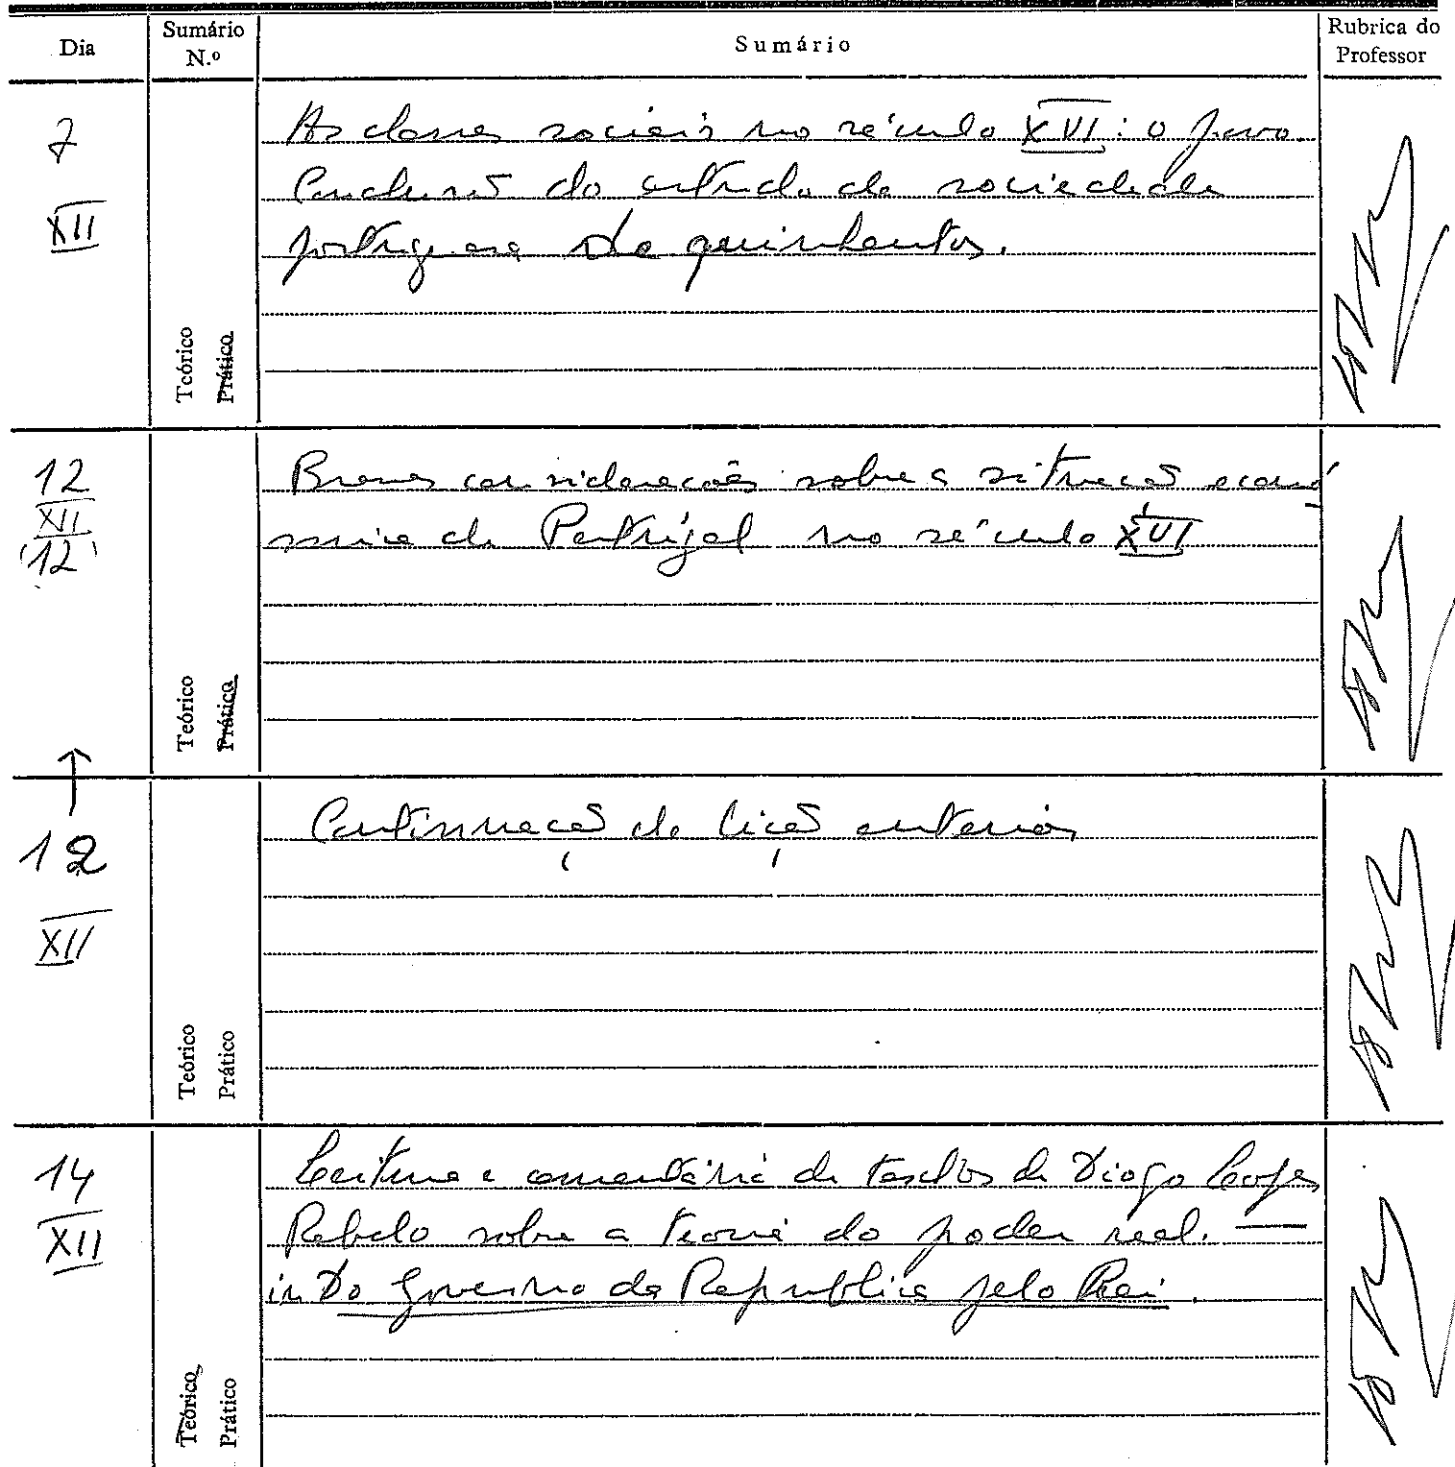 Dia
Sumário N.º
Sumário
Rubrica do Professor
7
XII
Teórico
Prático
As classes sociais no século XVI: o povo.
Conclusão do estudo da sociedade
portuguesa de quinhentos.
12
XII
12
Teórico
Prático
Breves considerações sobre a situação econó
mica de Portugal no século XVI
12
XII
Teórico
Prático
Continuação da lição anterior
14
XII
Teórico
Prático
Leitura e comentário de textos de Diogo Lopes
Rebelo sobre a teoria do poder real. —
in Do Governo da Republica pelo Rei.